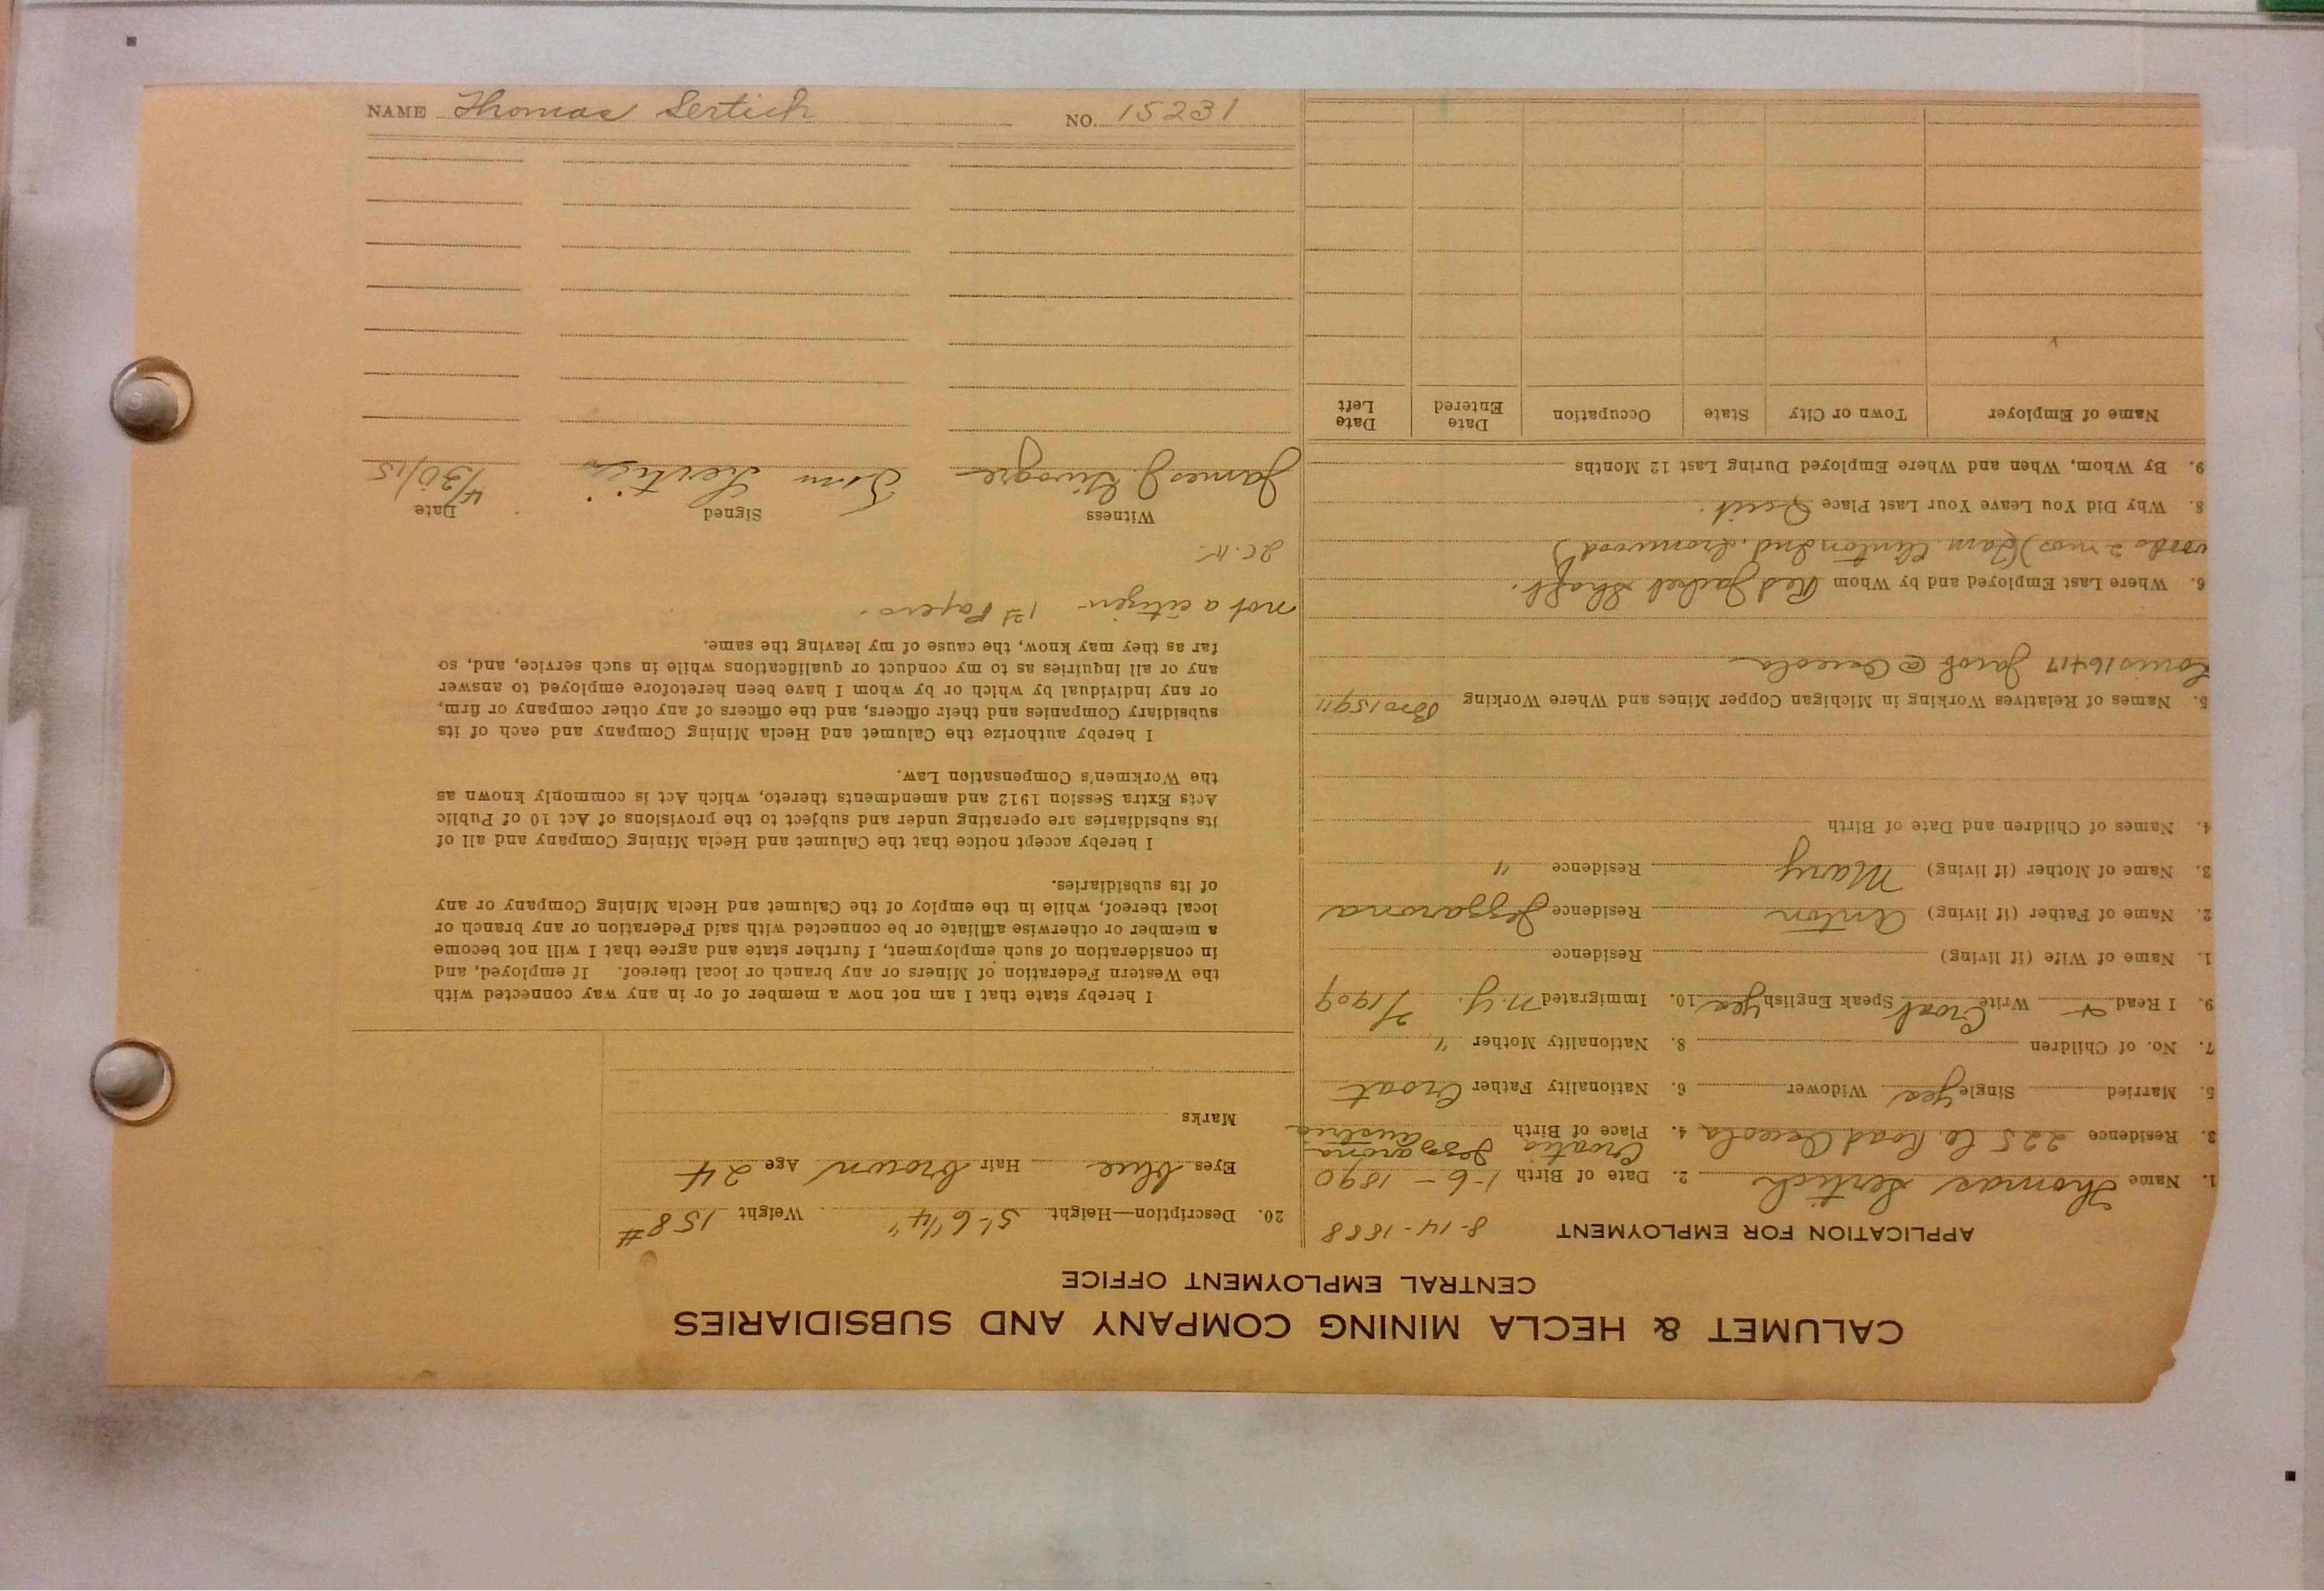 NAME Thomas Sertich NO. 15231
CALUMET & HECLA MINING COMPANY AND SUBSIDIARIES
CENTRAL EMPLOYMENT OFFICE
APPLICATION FOR EMPLOYMENT 8-14-1888
1. Name Thomas Sertich 2. Date of Birth 1-6-1890
3. Residence 225 Co. Road Osceola 4. Place of Birth Croatia Austria
5. Married Single yes Widower 6. Nationality Father Croat
7. No. of Children 8. Nationality Mother "
9. I Read + Write Croat Speak English yes 10. Immigrated N.Y. 2/1909
1. Name of Wife (if living) Residence
2. Name of Father (if living) Anton Residence
3. Name of Mother (if living) Mary Residence "
4. Names of Children and Date of Birth
5. Names of Relatives Working in Michigan Copper Mines and Where Working Bro 15911
Louis 16417 Jacob @ Osceola
6. Where Last Employed and by Whom Red Jacket Shaft.
woods 2 mos (Ironwood)
8. Why Did You Leave Your Last Place Quit.
9. By Whom, When and Where Employed During Last 12 Months
Name of Employer Town or City State Occupation Date Entered Date Left
20. Description—Height 5' 6 1/4" Weight 158#
Eyes blue Hair brown Age 24
Marks
I hereby state that I am not now a member of or in any way connected with
the Western Federation of Miners or any branch or local thereof. If employed, and
in consideration of such employment, I further state and agree that I will not become
a member or otherwise affiliate or be connected with said Federation or any branch or
local thereof, while in the employ of the Calumet and Hecla Mining Company or any
of its subsidiaries.
I hereby accept notice that the Calumet and Hecla Mining Company and all of
its subsidiaries are operating under and subject to the provisions of Act 10 of Public
Acts Extra Session 1912 and amendments thereto, which Act is commonly known as
the Workmen's Compensation Law.
I hereby authorize the Calumet and Hecla Mining Company and each of its
subsidiary Companies and their officers, and the officers of any other company or firm,
or any individual by which or by whom I have been heretofore employed to answer
any or all inquiries as to my conduct or qualifications while in such service, and, so
far as they may know, the cause of my leaving the same.
not a citizen - 1st Papers.
Witness Signed Date
James J. Tom Sertich 4/30/15